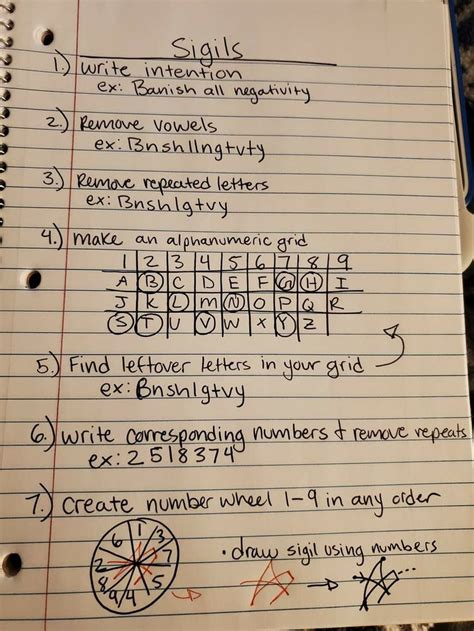 Sigils
1.) Write intention
ex: Banish all negativity
2.) Remove vowels
ex: Bnshllngtvty
3.) Remove repeated letters
ex: Bnshlgtvy
4.) make an alphanumeric grid
1 2 3 4 5 6 7 8 9
A B C D E F G H I
J K L m N O P Q R
S T U V W X Y Z
5.) Find leftover letters in your grid
ex: Bnshlgtvy
6.) Write corresponding numbers + remove repeats
ex: 2518374
7.) Create number wheel 1-9 in any order
1 3 7 5 4 9 8 2 6
• draw sigil using numbers